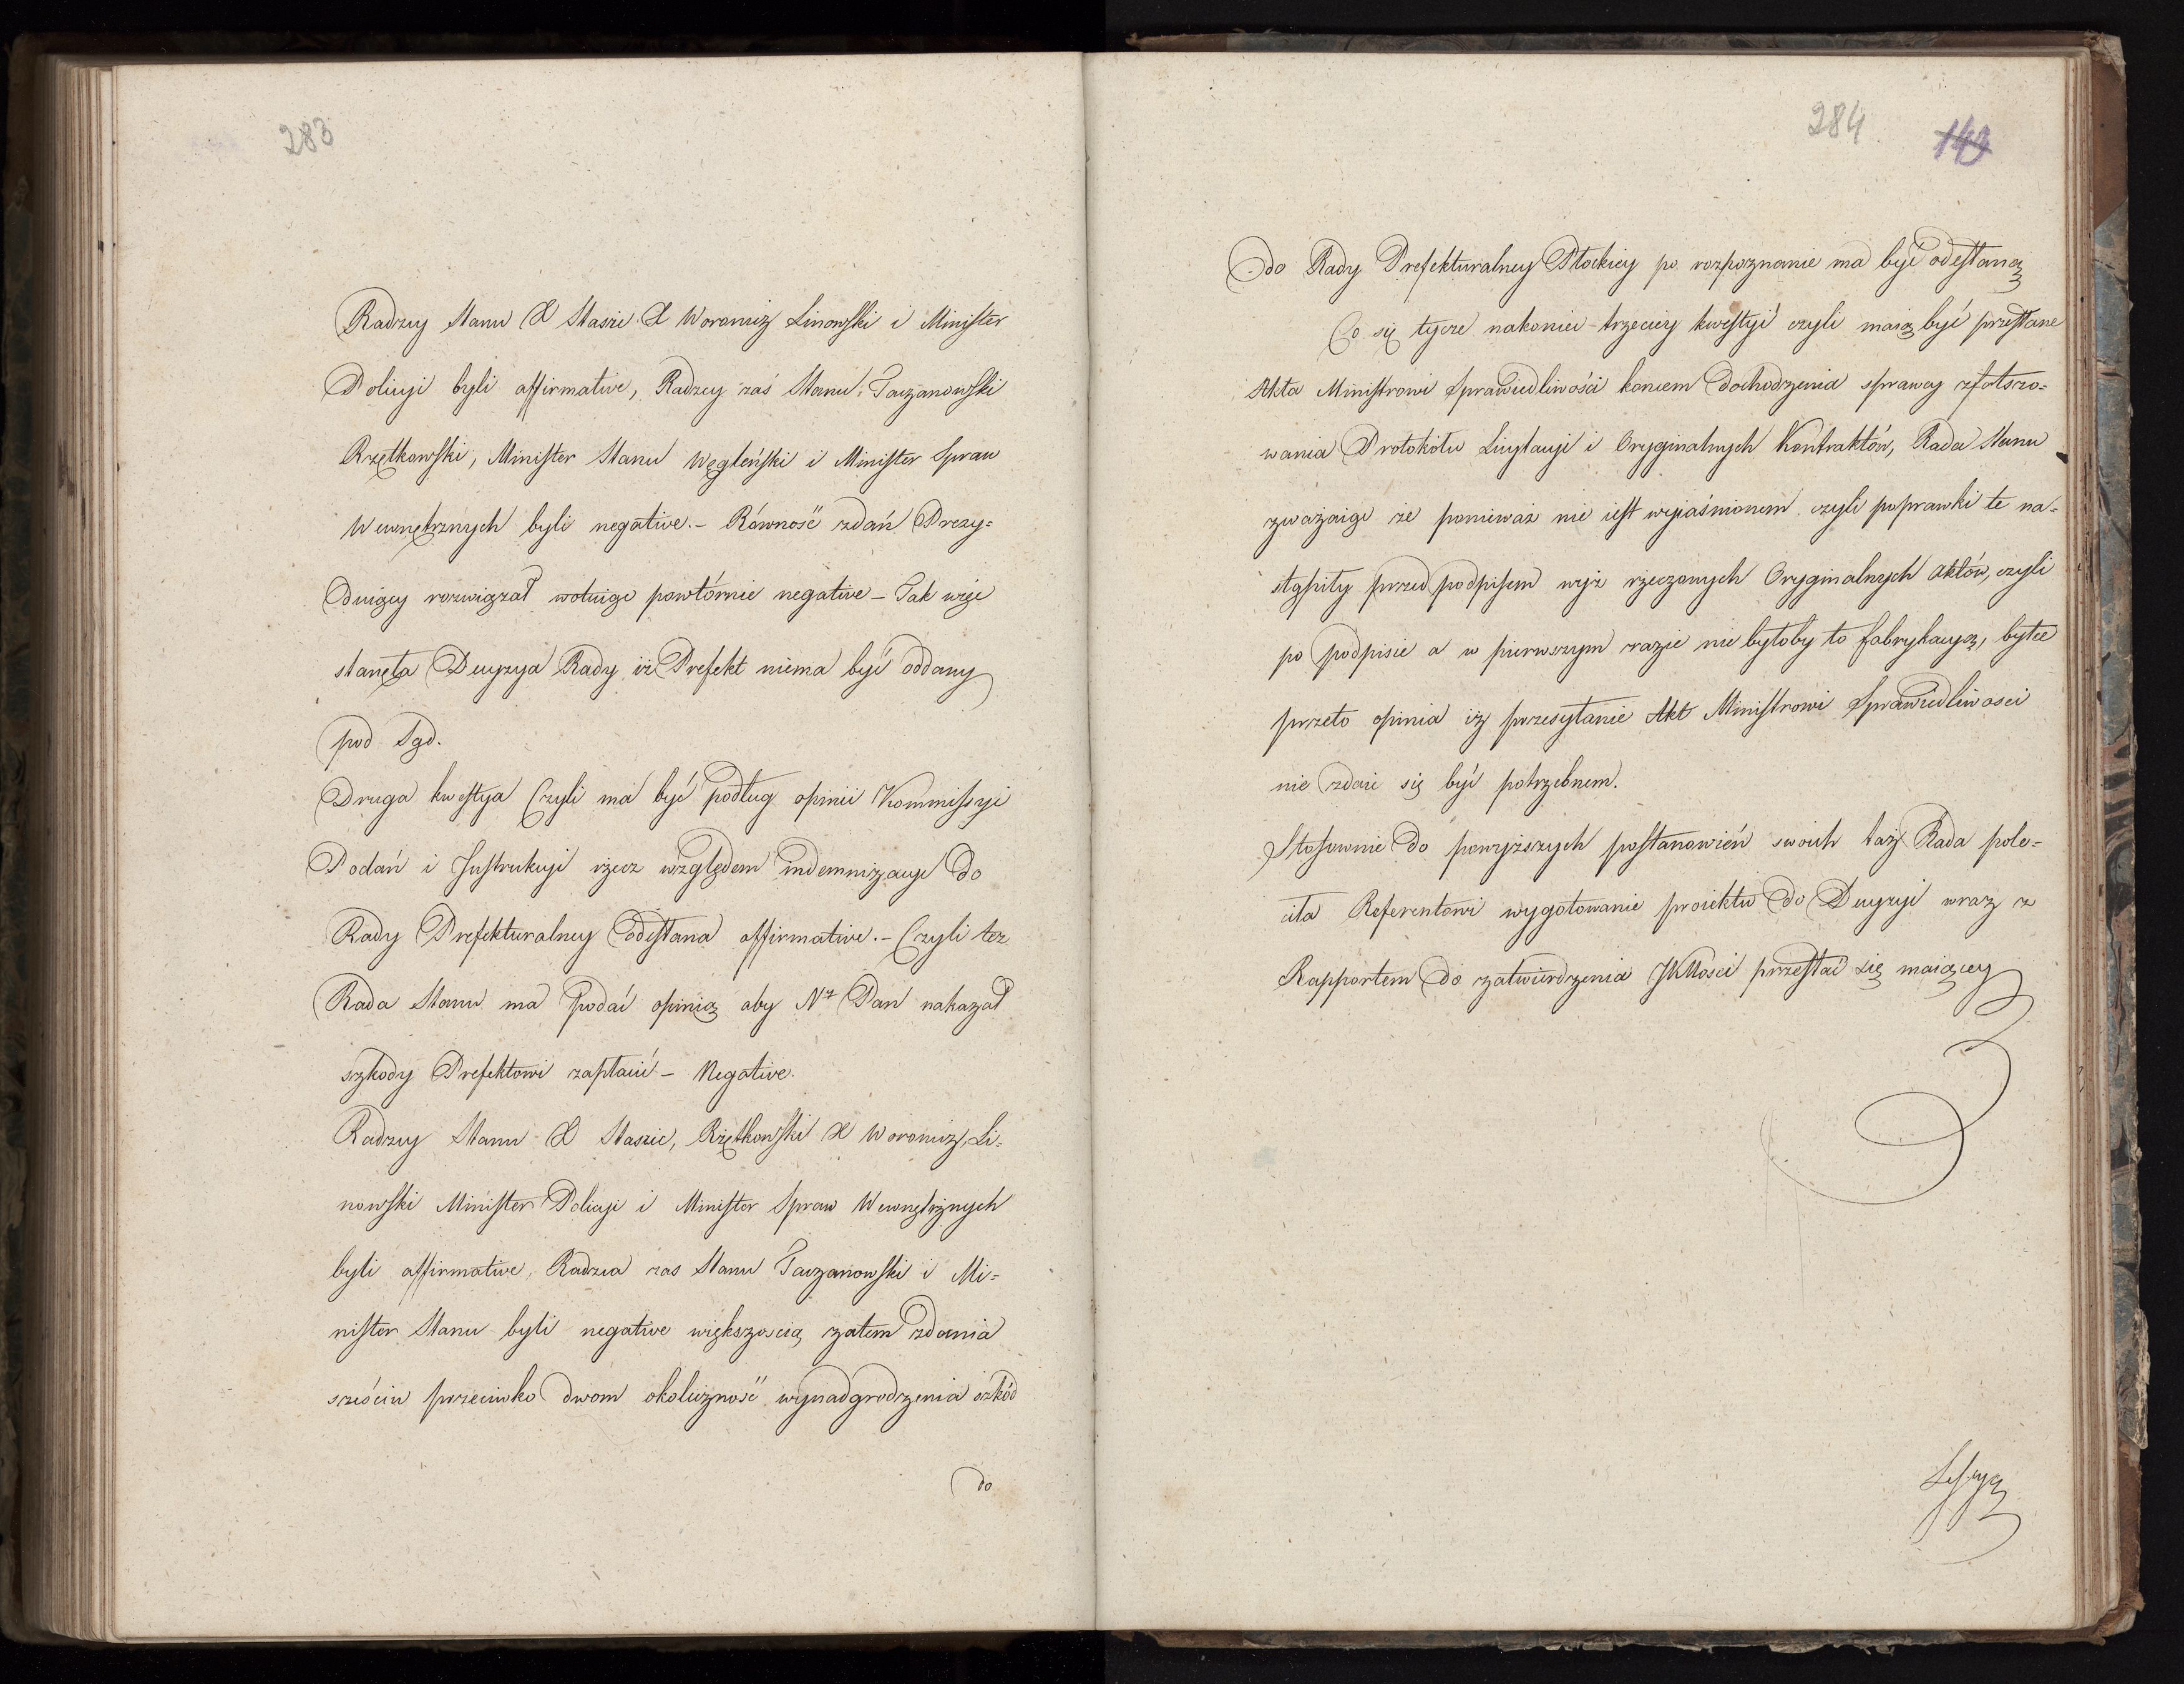 283
Radzcy Stanu X Staszic X Woronicz Linowski i Minister
Policyi byli affirmative, Radzcy zaś Stanu: Taczanowski
Rzętkowski, Minister Stanu Węgleński i Minister Spraw
Wewnętrznych byli negative. – Równość zdań Prezy=
duiący rozwiązał wotuiąc powtórnie negative – Tak więc
stanęła Decyzya Rady iż Prefekt niema być oddany
pod Sąd.
Druga kwestya Czyli ma być podług opinii Kommissyi
Podań i Instrukcyi rzecz względem indemnizacyi do
Rady Prefekturalney odesłana affirmative. – Czyli też
Rada Stanu ma podać opinią aby Nż Pan nakazał
szkody Prefektowi zapłacić – Negative.
Radzcy Stanu X Staszic, Rzętkowski X Woronicz, Li=
nowski Minister Policyi i Minister Spraw Wewnętrznych
byli affirmative, Radzca zas Stanu Taczanowski i Mi=
nister Stanu byli negative większoscią zatem zdania
sześciu przeciwko dwom okoliczność wynadgrodzenia szkód
do
284
140
do Rady Prefekturalney Płockiey po rozpoznanie ma być odesłaną
Co się tycze nakoniec trzeciey kwestyi czyli maią być przesłane
Akta Ministrowi Sprawiedliwości koncem dochodzenia sprawcy sfałszo=
wania Protokołu Licytacyi i Oryginalnych Kontraktów, Rada Stanu
zważaiąc że ponieważ nie iest wyiaśnionem czyli poprawki te na=
stąpiły przed podpisem wyż rzeczonych Oryginalnych aktów, czyli
po podpisie a w pierwszym razie nie byłoby to fabrykacyą, byłce
przeto opinia iż przesyłanie Akt Ministrowi Sprawiedliwosci
nie zdaie się być potrzebnem.
Stosownie do powyższych postanowień swoich taż Rada pole=
ciła Referentowi wygotowanie proiektu do Decyzyi wraz z
Rapportem do zatwierdzenia JKMosci przesłać się maiącey